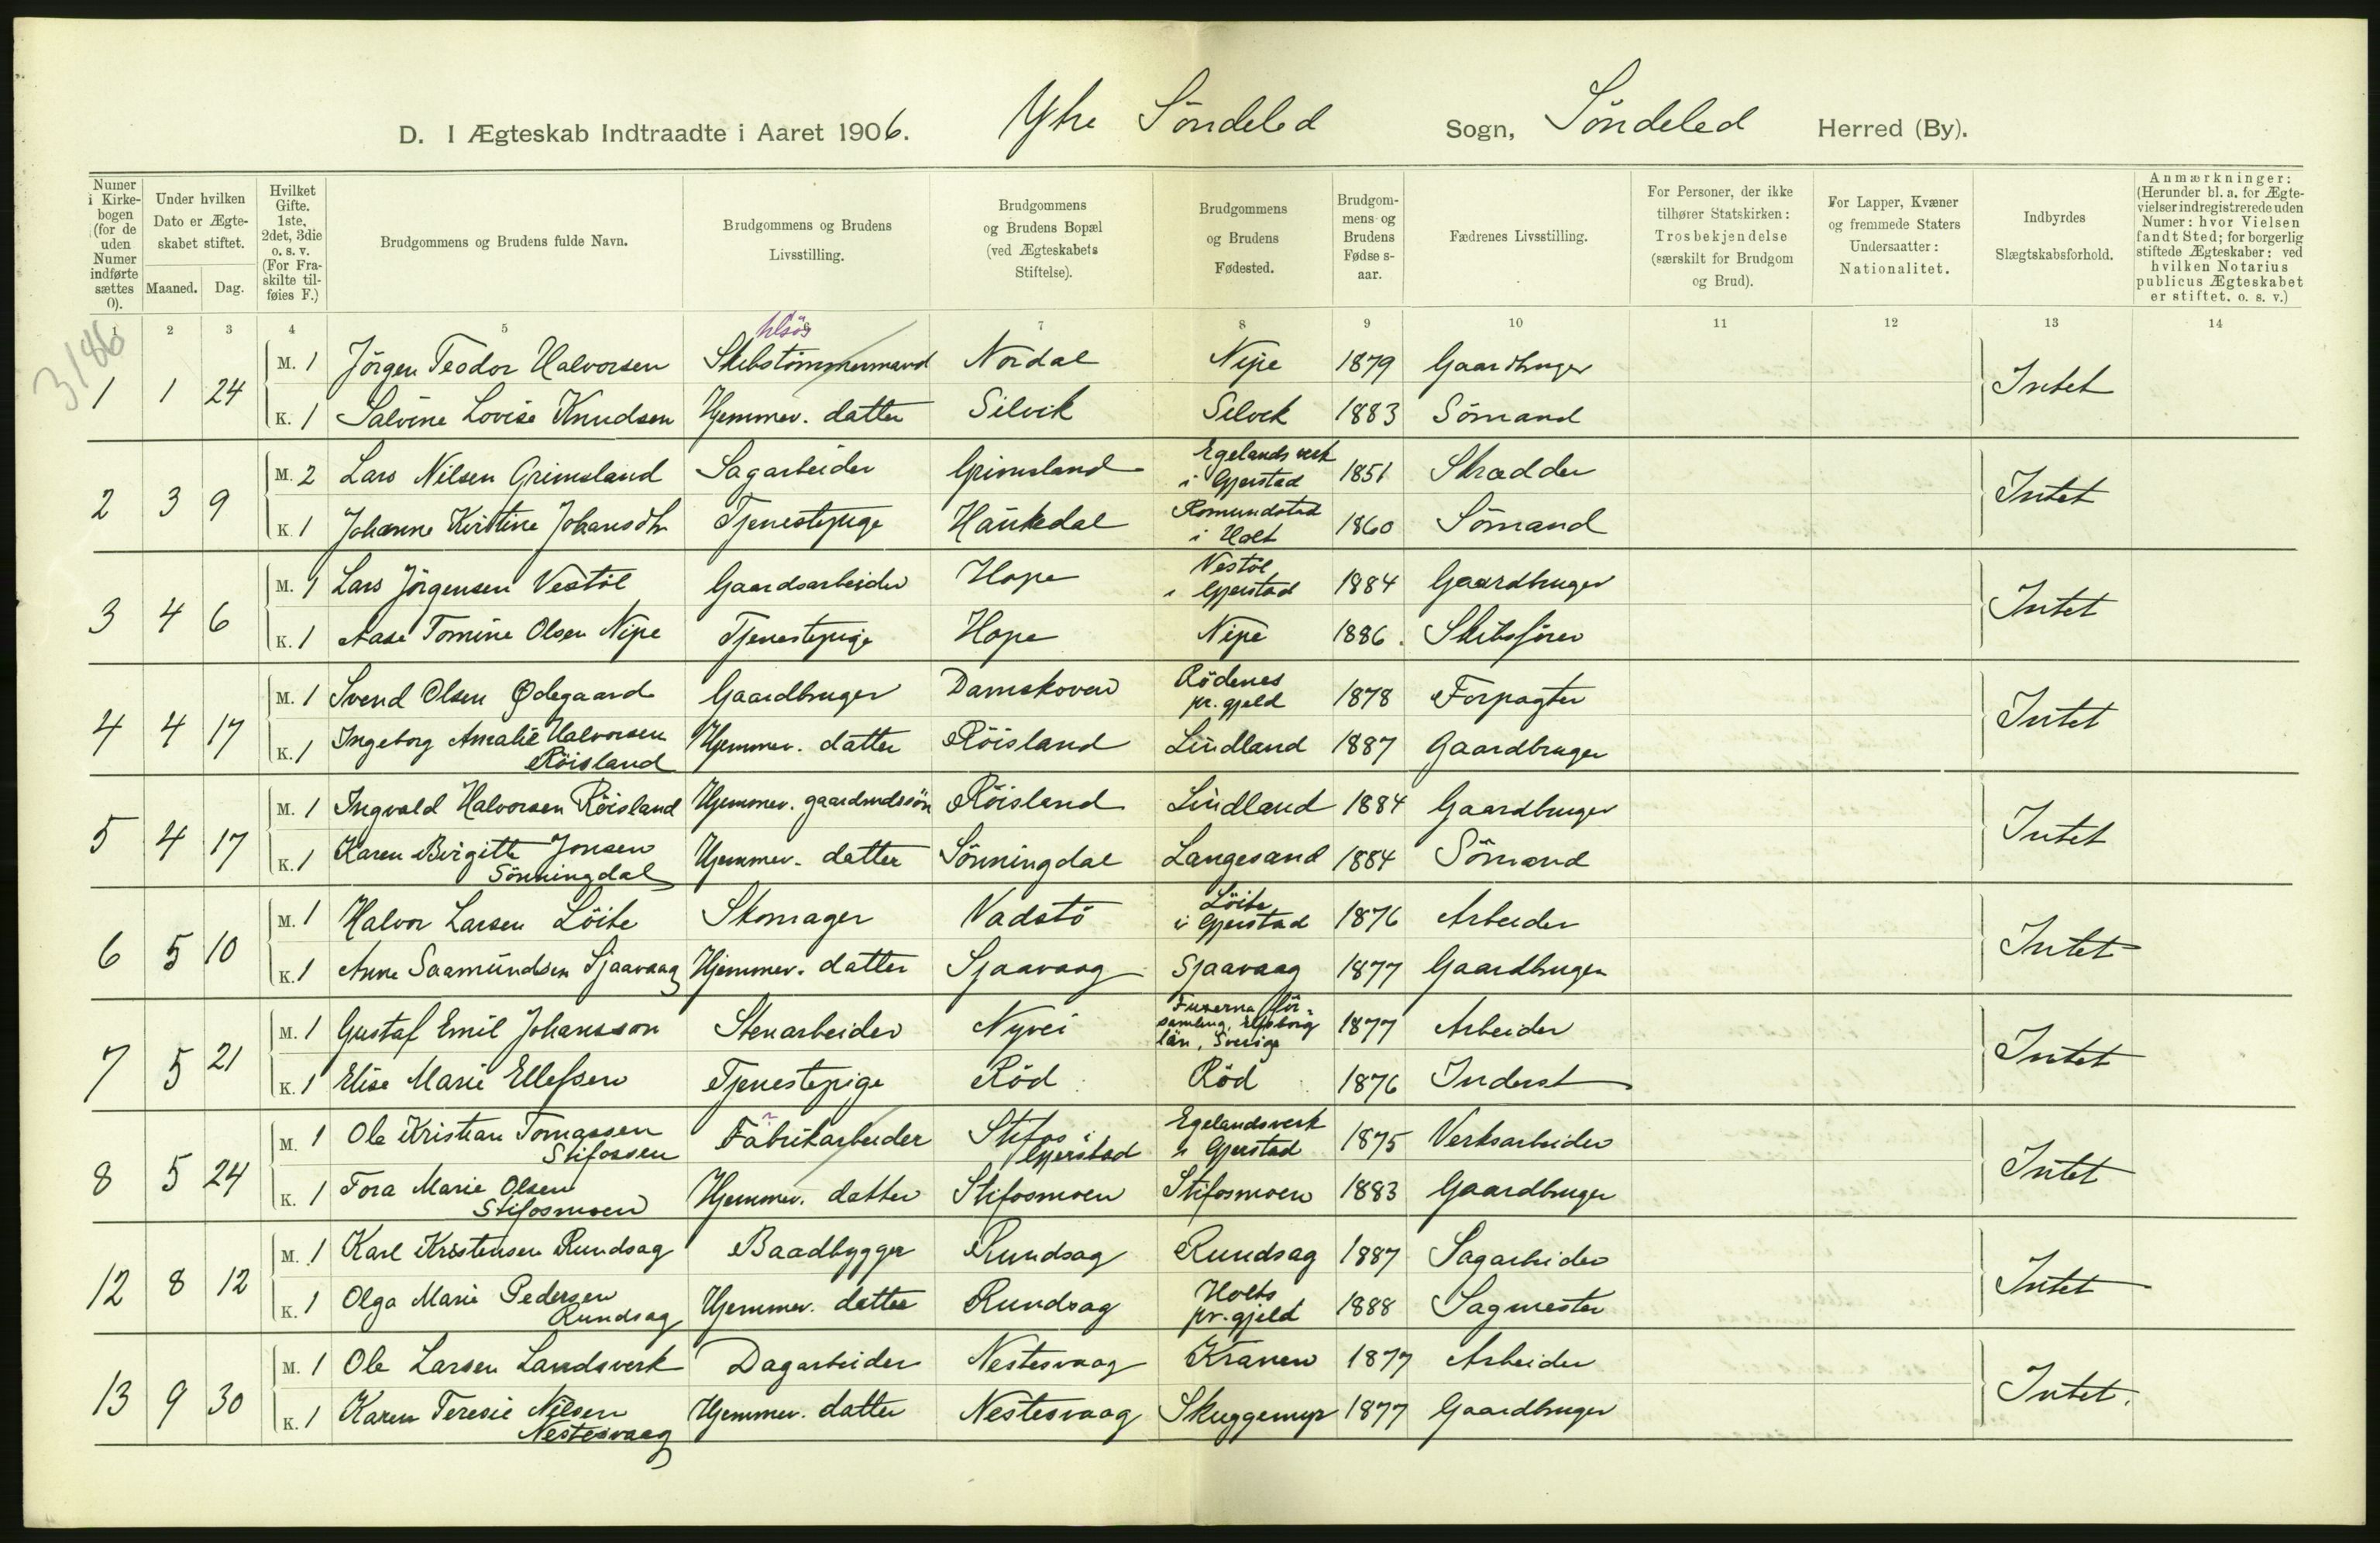 D. I Ægteskab Indtraadte i Aaret 1906. Ytre Söndeled Sogn, Söndeled Herred (By).
Numer i Kirkebogen (for de uden Numer indførte sættes 0).
Under hvilken Dato er Ægteskabet stiftet.
Maaned. Dag.
Hvilket Gifte. 1ste, 2det, 3die o. s. v. (For Fraskilte tilføies F.)
Brudgommens og Brudens fulde Navn.
Brudgommens og Brudens Livsstilling.
Brudgommens og Brudens Bopæl (ved Ægteskabets Stiftelse).
Brudgommens og Brudens Fødested.
Brudgommens og Brudens Fødselsaar.
Fædrenes Livsstilling.
For Personer, der ikke tilhører Statskirken: Trosbekjendelse (særskilt for Brudgom og Brud).
For Lapper, Kvæner og fremmede Staters Undersaatter: Nationalitet.
Indbyrdes Slægtskabsforhold.
Anmærkninger: (Herunder bl. a. for Ægtevielser indregistrerede uden Numer: hvor Vielsen fandt Sted; for borgerlig stiftede Ægteskaber: ved hvilken Notarius publicus Ægteskabet er stiftet, o. s. v.)
1 2 3 4 5 6 7 8 9 10 11 12 13 14
3186
1 1 24 M. 1 Jörgen Teodor Halvorsen Skibstömmermand Nordal Nipe 1879 Gaardbruger Intet
K. 1 Salvine Lovise Knudsen Hjemmev. datter Silvik Selvik 1883 Sömand
2 3 9 M. 2 Lars Nilsen Grimsland Sagarbeider Grimsland Egelands verk i Gjerstad 1851 Skrædder Intet
K. 1 Johanne Kirstine Johansdtr Tjenestepige Haukedal Romundstad i Holt 1860 Sömand
3 4 6 M. 1 Lars Jörgensen Vestöl Gaardsarbeider Hope Vestöl i Gjerstad 1884 Gaardbruger Intet
K. 1 Aase Tomine Olsen Nipe Tjenestepige Hope Nipe 1886. Skibsförer
4 4 17 M. 1 Svend Olsen Ødegaard Gaardbruger Damskoven Rödenes pr. gjeld 1878 Forpagter Intet
K. 1 Ingeborg Amalie Halvorsen Röisland Hjemmev. datter Röisland Lindland 1887 Gaardbruger
5 4 17 M. 1 Ingvald Halvorsen Röisland Hjemmev. gaardmdssön Röisland Lindland 1884 Gaardbruger Intet
K. 1 Karen Birgitte Jonsen Sönningdal Hjemmev. datter Sönningdal Langesand 1884 Sömand
6 5 10 M. 1 Halvor Larsen Löite Skomager Vadstö Löite i Gjerstad 1876 Arbeider Intet
K. 1 Anne Saamundsen Sjaavaag Hjemmev. datter Sjaavaag Sjaavaag 1877 Gaardbruger
7 5 21 M. 1 Gustaf Emil Johansson Stenarbeider Nyvei Fuxerna församling, Elfsborg län, Sverige 1877 Arbeider Intet
K. 1 Elise Marie Ellefsen Tjenestepige Röd Röd 1876 Inderst
8 5 24 M. 1 Ole Kristian Tomassen Stifossen Fabrikarbeider Stifos i Gjerstad Egelandsverk i Gjerstad 1875 Verksarbeider Intet
K. 1 Tora Marie Olsen Stifosmoen Hjemmev. datter Stifosmoen Stifosmoen 1883 Gaardbruger
12 8 12 M. 1 Karl Kristensen Rundsag Baadbygger Rundsag Rundsag 1887 Sagarbeider Intet
K. 1 Olga Marie Pedersen Rundsag Hjemmev. datter Rundsag Holts pr. gjeld 1888 Sagmester
13 9 30 M. 1 Ole Larsen Landsverk Dagarbeider Nestesvaag Kranen 1877 Arbeider Intet.
K. 1 Karen Teresie Nilsen Nestesvaag Hjemmev. datter Nestesvaag Skuggemyr 1877 Gaardbruger